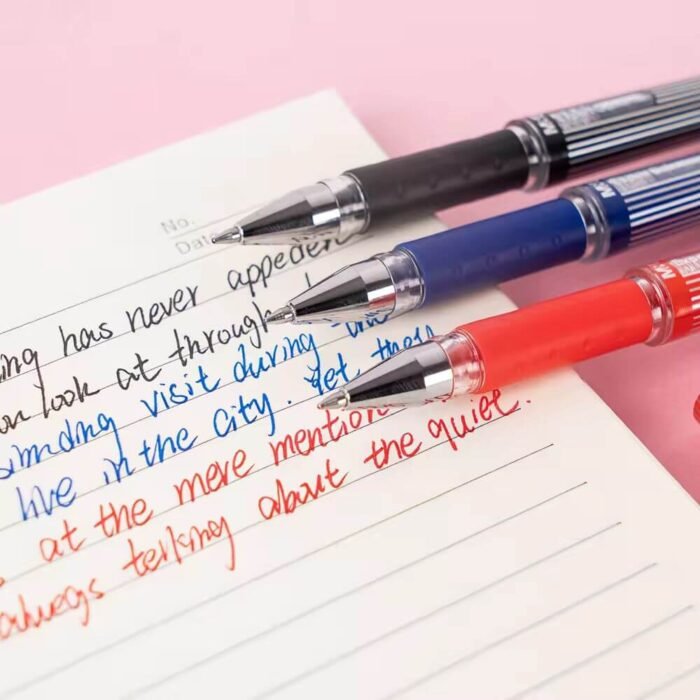 No.
Dat
ing has never appeder
on look at through
visit during the
live in the city. Yet them
at the mere mention
alwegs terking about the quiet.
M
M
M